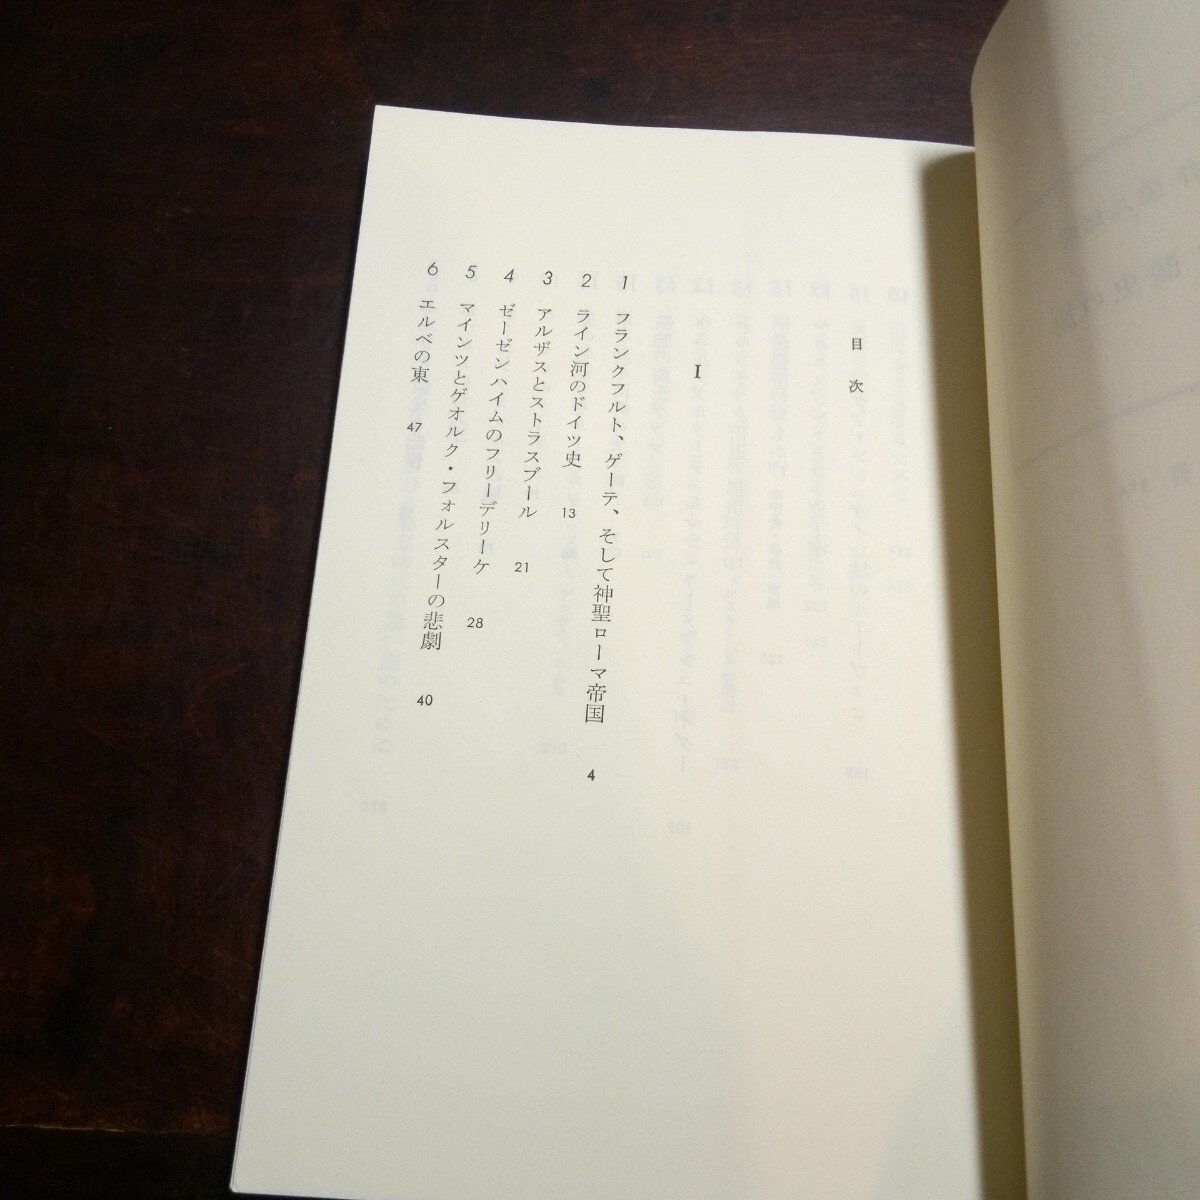 目次
I
1 フランクフルト、ゲーテ、そして神聖ローマ帝国 4
2 ライン河のドイツ史 13
3 アルザスとストラスブール 21
4 ゼーゼンハイムのフリーデリーケ 28
5 マインツとゲオルク・フォルスターの悲劇 40
6 エルベの東 47